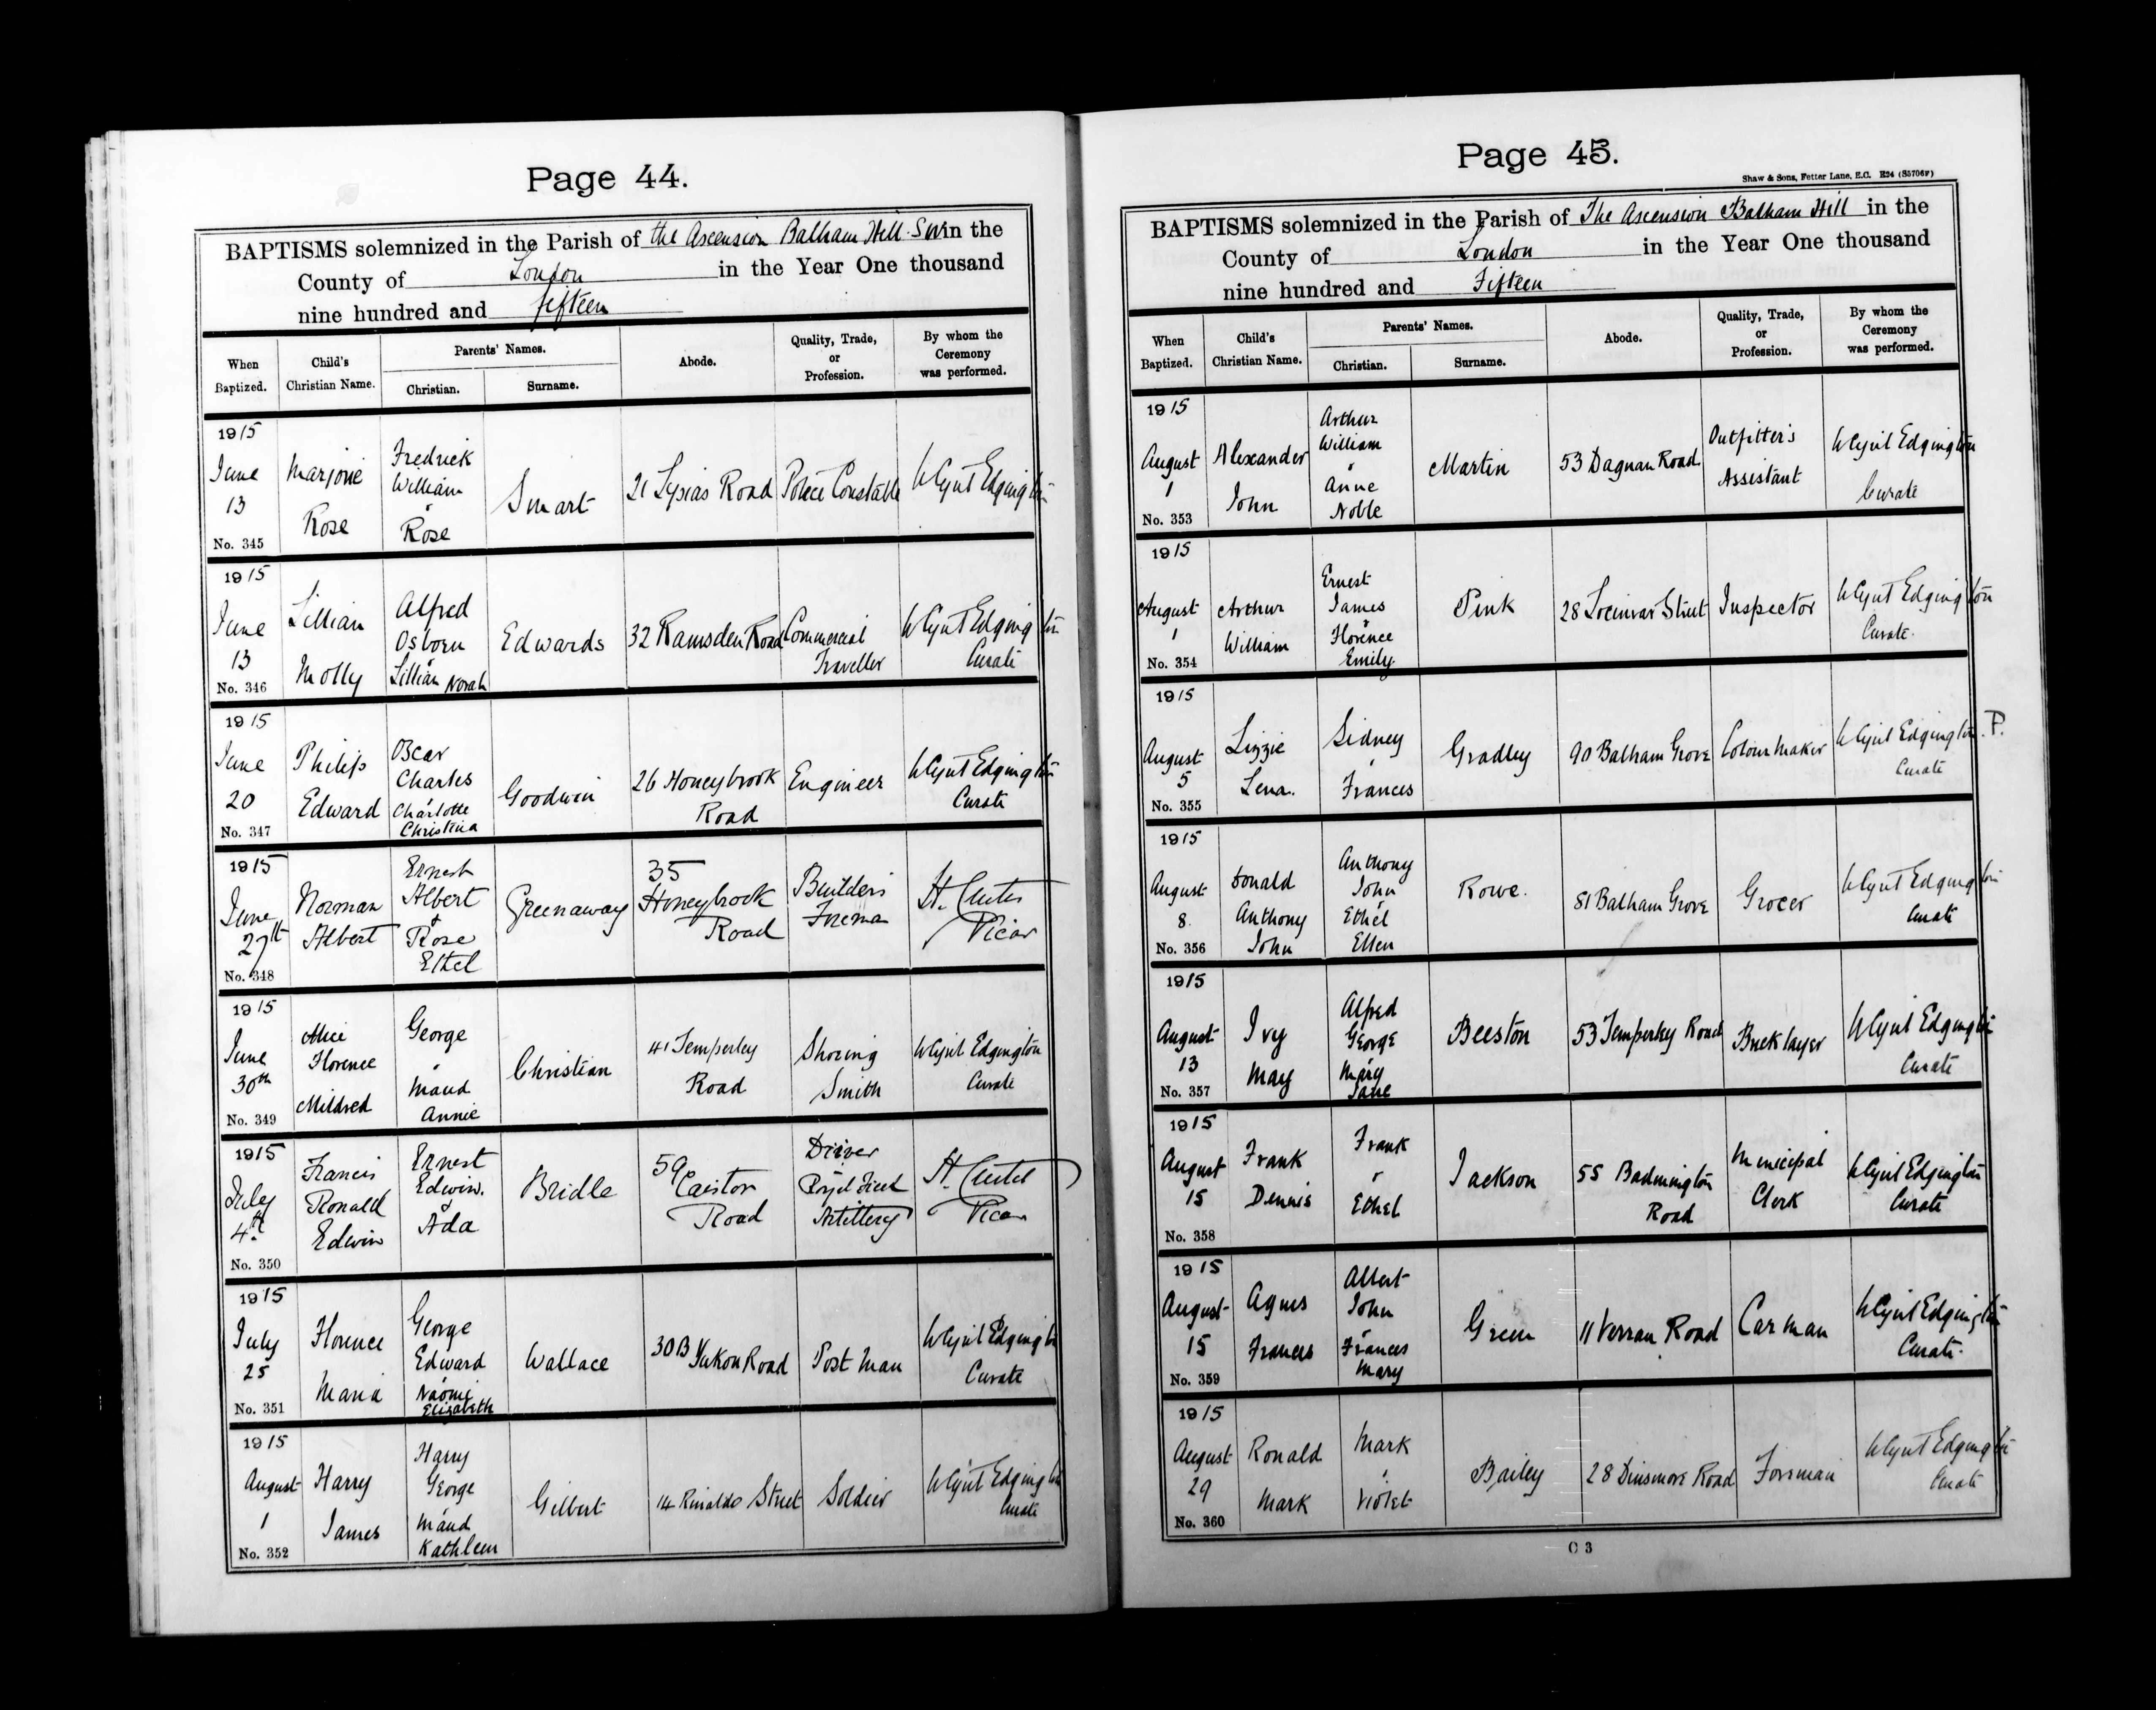 Page 44.
BAPTISMS solemnized in the Parish of the Ascension Balham Hill. S.W. in the
County of London in the Year One thousand
nine hundred and fifteen
When Baptized.
Child's Christian Name.
Parents' Names.
Christian.
Surname.
Abode.
Quality, Trade, or Profession.
By whom the Ceremony was performed.
1915
June
13
No. 345
Marjorie
Rose
Fredrick
William
&
Rose
Smart
21 Lysias Road
Police Constable
W Cyril Edgington
1915
June
13
No. 346
Lillian
Molly
Alfred
Osborn
&
Lillian Norah
Edwards
32 Ramsden Road
Commercial
Traveller
W Cyril Edgington
Curate
1915
June
20
No. 347
Philip
Edward
Oscar
Charles
&
Charlotte
Christina
Goodwin
26 Honeybrook
Road
Engineer
W Cyril Edgington
Curate
1915
June
27th
No. 348
Norman
Albert
Ernest
Albert
&
Rose
Ethel
Greenaway
35
Honeybrook
Road
Builder's
Foreman
Vicar
1915
June
30th
No. 349
Alice
Florence
Mildred
George
&
Maud
Annie
Christian
41 Temperley
Road
Shoeing
Smith
W Cyril Edgington
Curate
1915
July
4th
No. 350
Francis
Ronald
Edwin
Ernest
Edwin.
&
Ada
Bridle
59
Road
Driver
Royal Field
Artillery
Vicar
1915
July
25
No. 351
Florence
Maria
George
Edward
&
Naomi
Elizabeth
Wallace
30B Yukon Road
Post Man
W Cyril Edgington
Curate
1915
August
1
No. 352
Harry
James
Harry
George
&
Maud
Kathleen
Gilbert
14 Rinaldo Street
Soldier
W Cyril Edgington
Curate
Page 45.
Shaw & Sons, Fetter Lane, E.C. R24 (S5706F)
BAPTISMS solemnized in the Parish of The Ascension Balham Hill in the
County of London in the Year One thousand
nine hundred and Fifteen
When Baptized.
Child's Christian Name.
Parents' Names.
Christian.
Surname.
Abode.
Quality, Trade, or Profession.
By whom the Ceremony was performed.
1915
August
1
No. 353
Alexander
John
Arthur
William
&
Anne
Noble
Martin
53 Dagnan Road
Outfitter's
Assistant
W Cyril Edgington
Curate
1915
August
1
No. 354
Arthur
William
Ernest
James
&
Florence
Emily
Pink
28 Lochinvar Street
Inspector
W Cyril Edgington
Curate.
1915
August
5
No. 355
Lizzie
Lena.
Sidney
&
Frances
Gradley
90 Balham Grove
Colour maker
W Cyril Edgington. P.
Curate
1915
August
8
No. 356
Donald
Anthony
John
Anthony
John
&
Ethel
Ellen
Rowe.
81 Balham Grove
Grocer
W Cyril Edgington
Curate
1915
August
13
No. 357
Ivy
May
Alfred
George
&
Mary
Jane
Beeston
53 Temperley Road
Bricklayer
W Cyril Edgington
Curate
1915
August
15
No. 358
Frank
Dennis
Frank
&
Ethel
Jackson
55 Badmington
Road
Municipal
Clerk
W Cyril Edgington
Curate
1915
August
15
No. 359
Agnes
Frances
Albert
John
&
Frances
Mary
Green
11 Verran Road
Carman
W Cyril Edgington
Curate.
1915
August
29
No. 360
Ronald
Mark
Mark
&
Violet
Bailey
28 Dinsmore Road
Foreman
W Cyril Edgington
Curate
C 3